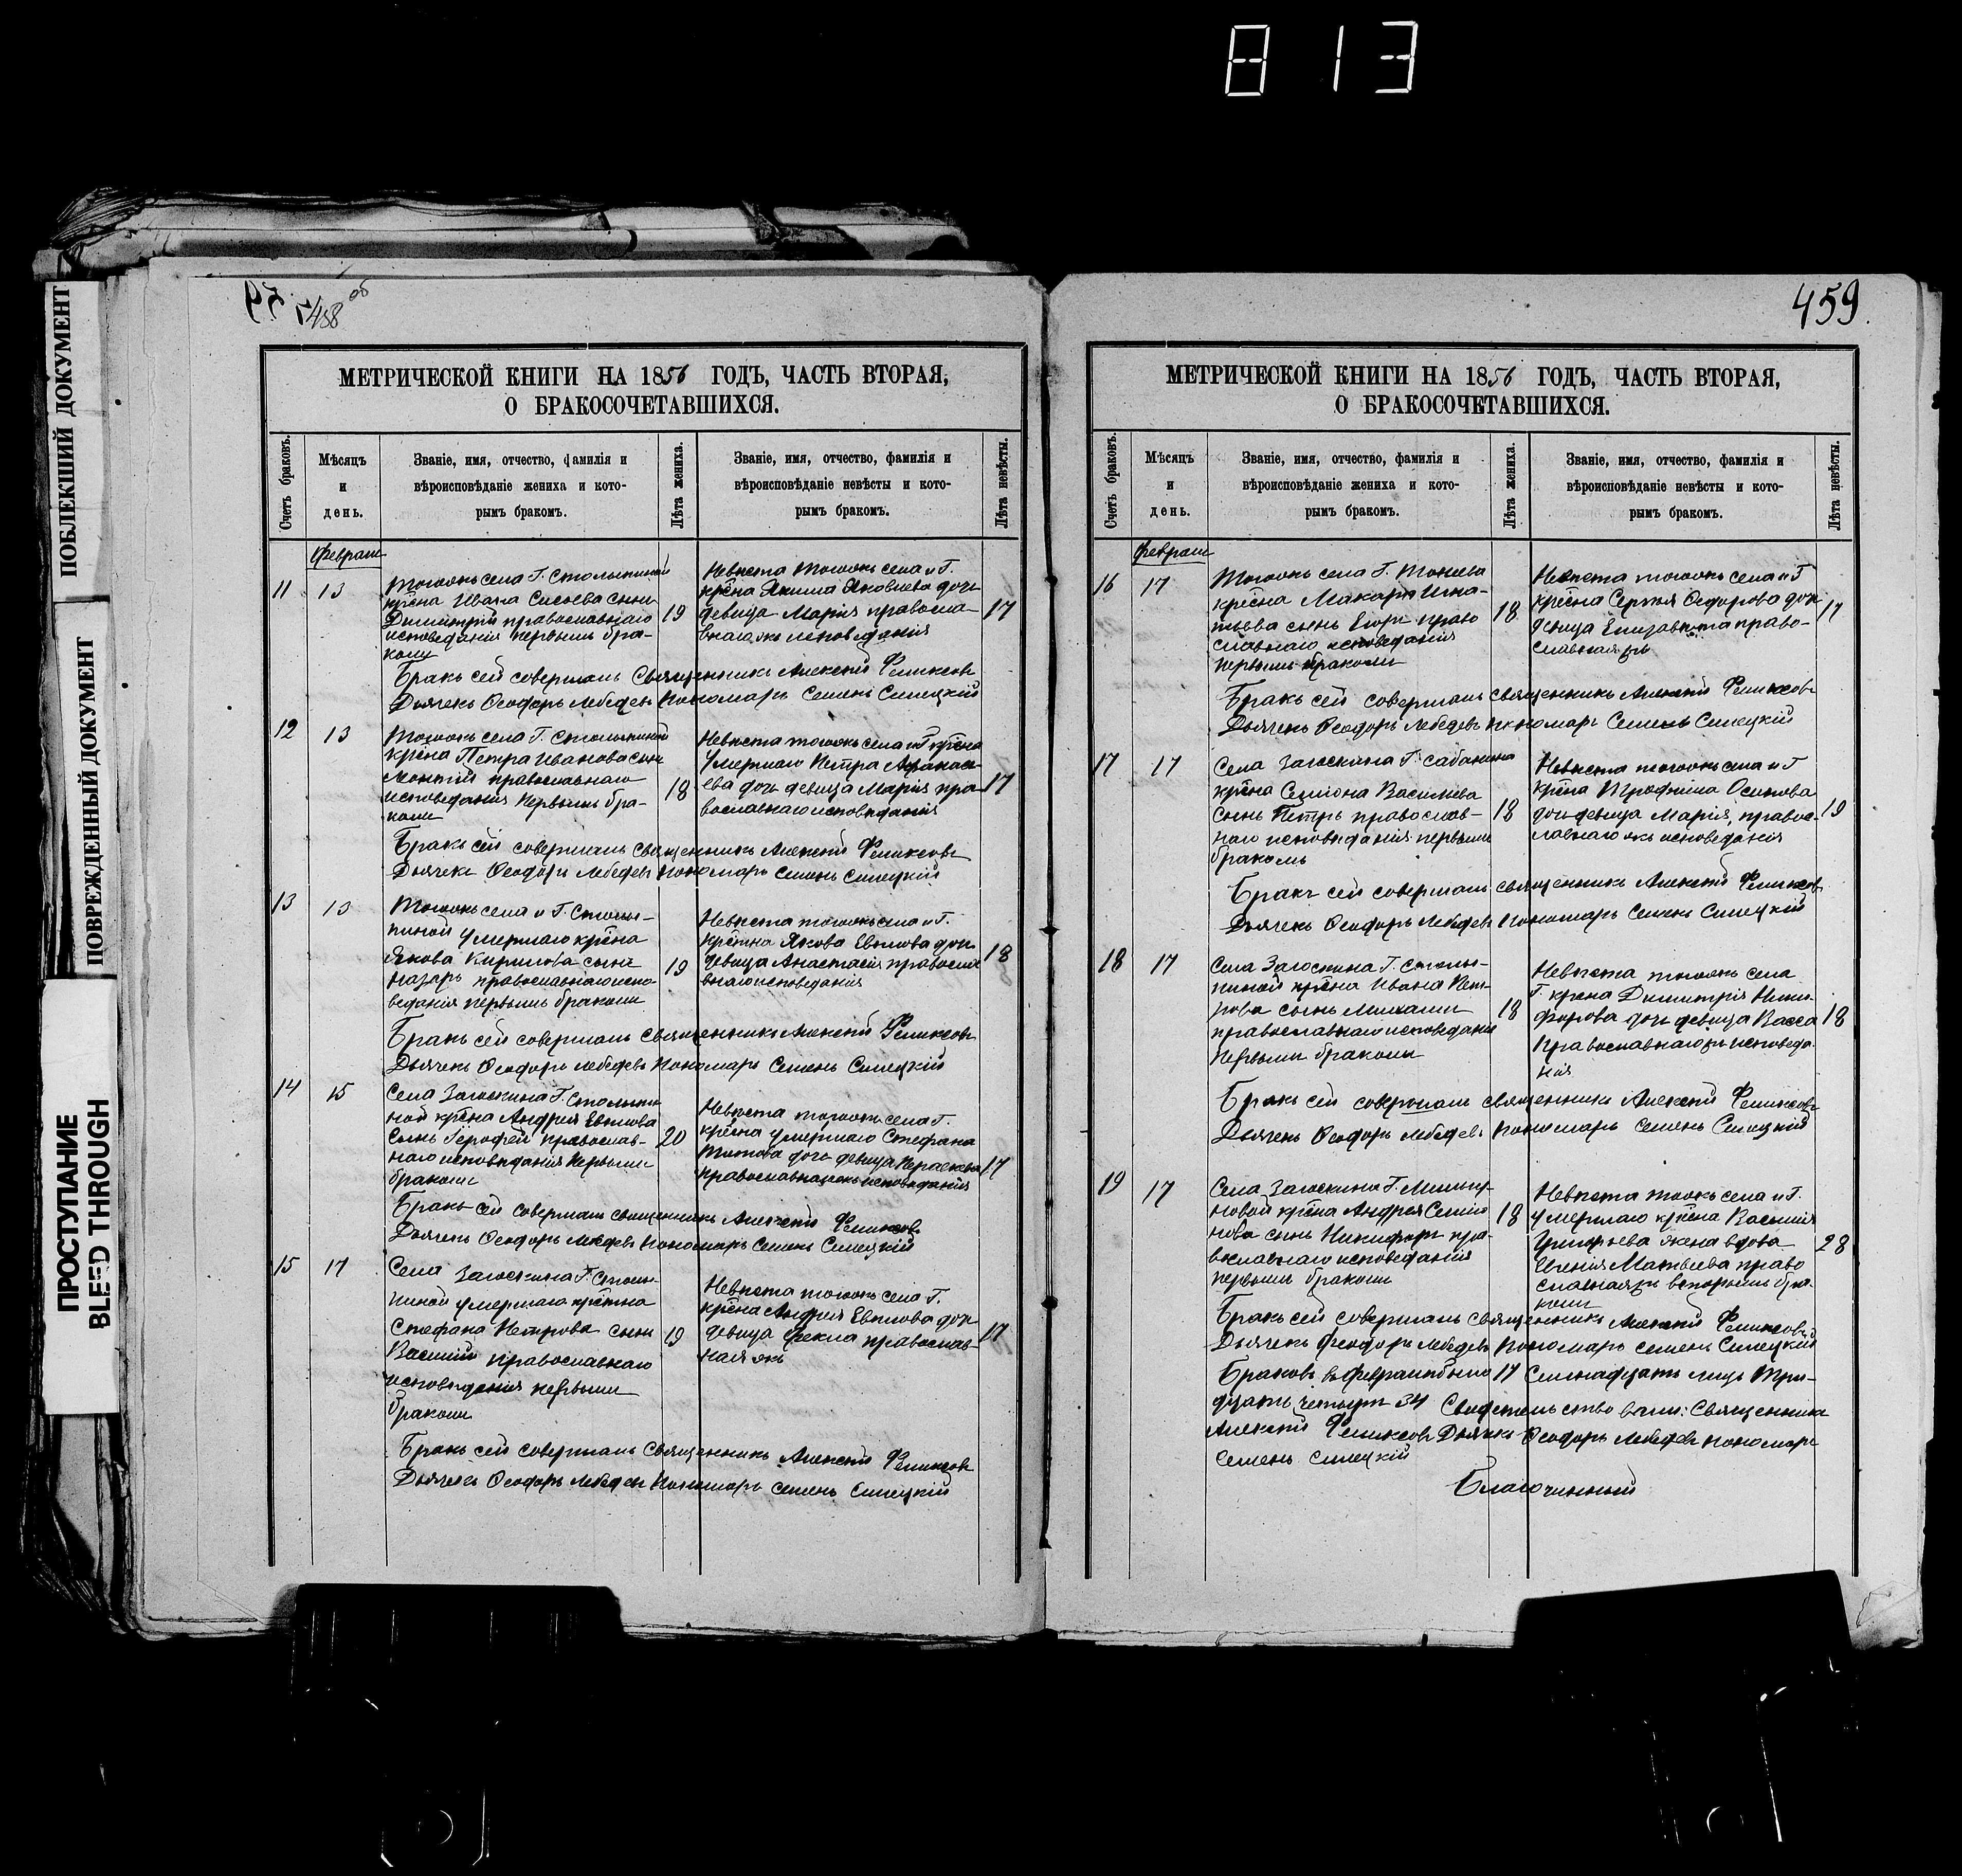 813
ПОБЛЕКШИЙ ДОКУМЕНТ
ПОВРЕЖДЕННЫЙ ДОКУМЕНТ
ПРОСТУПАНИЕ
BLEED THROUGH
458 об
МЕТРИЧЕСКОЙ КНИГИ НА 1856 ГОДЪ, ЧАСТЬ ВТОРАЯ,
О БРАКОСОЧЕТАВШИХСЯ.
Счетъ браковъ.
Мѣсяцъ
и
день.
Званіе, имя, отчество, фамилія и
вѣроисповѣданіе жениха и кото-
рымъ бракомъ.
Лѣта жениха.
Званіе, имя, отчество, фамилія и
вѣроисповѣданіе невѣсты и кото-
рымъ бракомъ.
Лѣта невѣсты.
11
13
села Г. Столыпиной
крѣна Ивана Сысоева сынъ
Димитрій православнаго
исповеданія первымъ бра-
комъ
19
Невѣста тогожъ села и Г.
крѣна Якима Яковлева дочь
девица Марія правосла-
внаго же исповеданія
17
Бракъ сей совершалъ Священникъ Алексей Феликсовъ
Дьячекъ Ѳеодоръ Лебедевъ Пономарь Семенъ Силецкій
12
13
села Г. Столыпиной
крѣна Петра Иванова сынъ
православнаго
исповеданія первымъ бра-
комъ
18
Невѣста тогожъ села и Г крѣна
умершаго Петра Афанась-
ева дочь девица Марія пра-
вославнаго исповѣданія
17
Бракъ сей совершалъ Священникъ Алексей Феликсовъ
Дьячекъ Ѳеодоръ Лебедевъ Пономарь Семенъ Силецкій
13
13
Тогожъ села и Г. Столы-
пиной умершаго крѣна
Якова Кирилова сынъ
Назаръ православнаго испо-
веданія первымъ бракомъ
19
Невѣста тогожъ села и Г.
Якова Евлова дочь
девица Анастасія правосла
внаго исповеданія
18
Бракъ сей совершалъ Священникъ Алексей Феликсовъ
Дьячекъ Ѳеодоръ Лебедевъ Пономарь Семенъ Силецкій
14
15
Села Загоскина Г. Столыпи-
ной крѣна Андрея Евлова
сынъ православ-
наго исповѣданія первымъ
бракомъ
20
Невѣста тогожъ села Г.
крѣна умершаго Стефана
Титова дочь девица
исповѣданія
17
Бракъ сей совершалъ священникъ Алексей Феликсовъ
Дьячекъ Ѳеодоръ Лебедевъ Пономарь Семенъ Силецкій
15
17
Села Загоскина Г. Столы-
пиной умершаго
Стефана Петрова сынъ
Василій православнаго
исповѣданія первымъ
бракомъ
19
Невѣста тогожъ села Г.
крѣна Андрея Евлова дочь
девица Фекла православ-
ная
17
Бракъ сей совершалъ Священникъ Алексей Феликсовъ
Дьячекъ Ѳеодоръ Лебедевъ Пономарь Семенъ Силецкій
459.
МЕТРИЧЕСКОЙ КНИГИ НА 1856 ГОДЪ, ЧАСТЬ ВТОРАЯ,
О БРАКОСОЧЕТАВШИХСЯ.
Счетъ браковъ.
Мѣсяцъ
и
день.
Званіе, имя, отчество, фамилія и
вѣроисповѣданіе жениха и кото-
рымъ бракомъ.
Лѣта жениха.
Званіе, имя, отчество, фамилія и
вѣроисповѣданіе невѣсты и кото-
рымъ бракомъ.
Лѣта невѣсты.
16
17
Тогожъ села Г.
крѣсна Макара Игна-
тьева сынъ Егоръ право
славнаго исповеданія
первымъ бракомъ
18
Невѣста тогожъ села и Г
крѣсна Сергея Ѳедорова дочь
девица Елизавета право-
славная
17
Бракъ сей совершалъ священникъ Алексей Феликсовъ
Дьячекъ Ѳеодоръ Лебедевъ пономарь Семенъ Силецкій
17
17
Села Загоскина Г.
крѣна Семіона Василіева
сынъ Петръ православ-
наго исповѣданія первымъ
бракомъ
18
Невѣста тогожъ села и Г
крѣна Трофима Осипова
дочь девица Марія, правос-
лавнаго же исповеданія
19
Бракъ сей совершалъ священникъ Алексей Феликсовъ
Дьячекъ Ѳеодоръ Лебедевъ Пономарь Семенъ Силецкій
18
17
Села Загоскина Г. Столы-
пиной крѣна Ивана Пет-
рова сынъ Михаилъ
православнаго исповеданія
первымъ бракомъ
18
Невѣста тогожъ села
Г. крѣна Димитрія Ники-
форова дочь девица Васса
исповеда
нія
18
Бракъ сей совершалъ священникъ Алексей Феликсовъ
Дьячекъ Ѳеодоръ Лебедевъ Пономарь Семенъ Силецкій
19
17
Села Загоскина Г.
крѣна Андрея Семіо
нова сынъ Никифоръ пра-
вославнаго исповеданія
первымъ бракомъ
18
Невѣста села и Г.
умершаго крѣна Василія
Григорьева жена вдова
Матвеева право
славная вторымъ бра-
комъ
28
Бракъ сей совершалъ священникъ Алексей Феликсовъ
Дьячекъ Феодоръ Лебедевъ Пономарь Семенъ Силецкій
17 Семнадцать лицъ Три-
дцать четыре 34 Священникъ
Алексей Феликсовъ Дьячекъ Ѳеодоръ Лебедевъ пономарь
Семенъ Силецкій
Благочинный